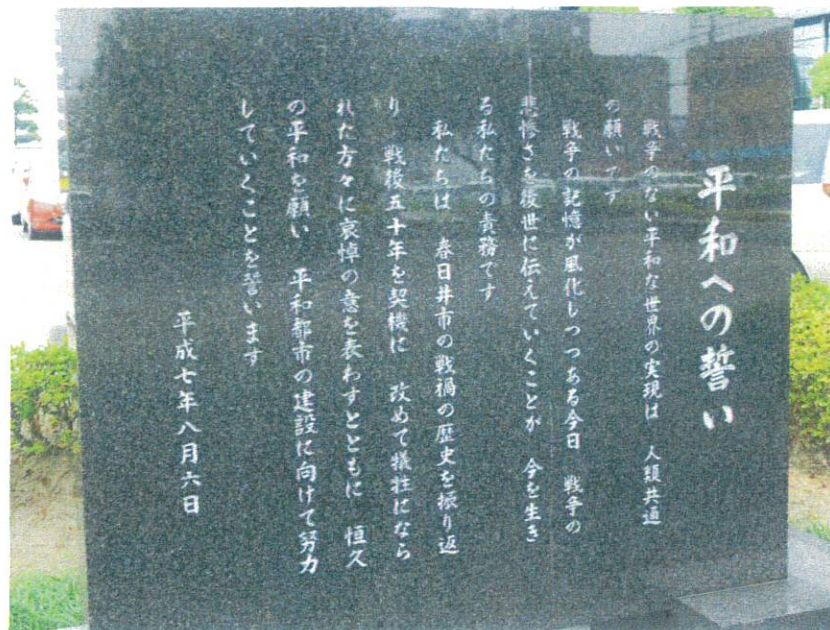 平和への誓い
戦争のない平和な世界の実現は　人類共通
の願いです
戦争の記憶が風化しつつある今日　戦争の
悲惨さを後世に伝えていくことが　今を生き
る私たちの責務です
私たちは　春日井市の戦禍の歴史を振り返
り　戦後五十年を契機に　改めて犠牲になら
れた方々に哀悼の意を表わすとともに　恒久
の平和を願い　平和都市の建設に向けて努力
していくことを誓います
平成七年八月六日